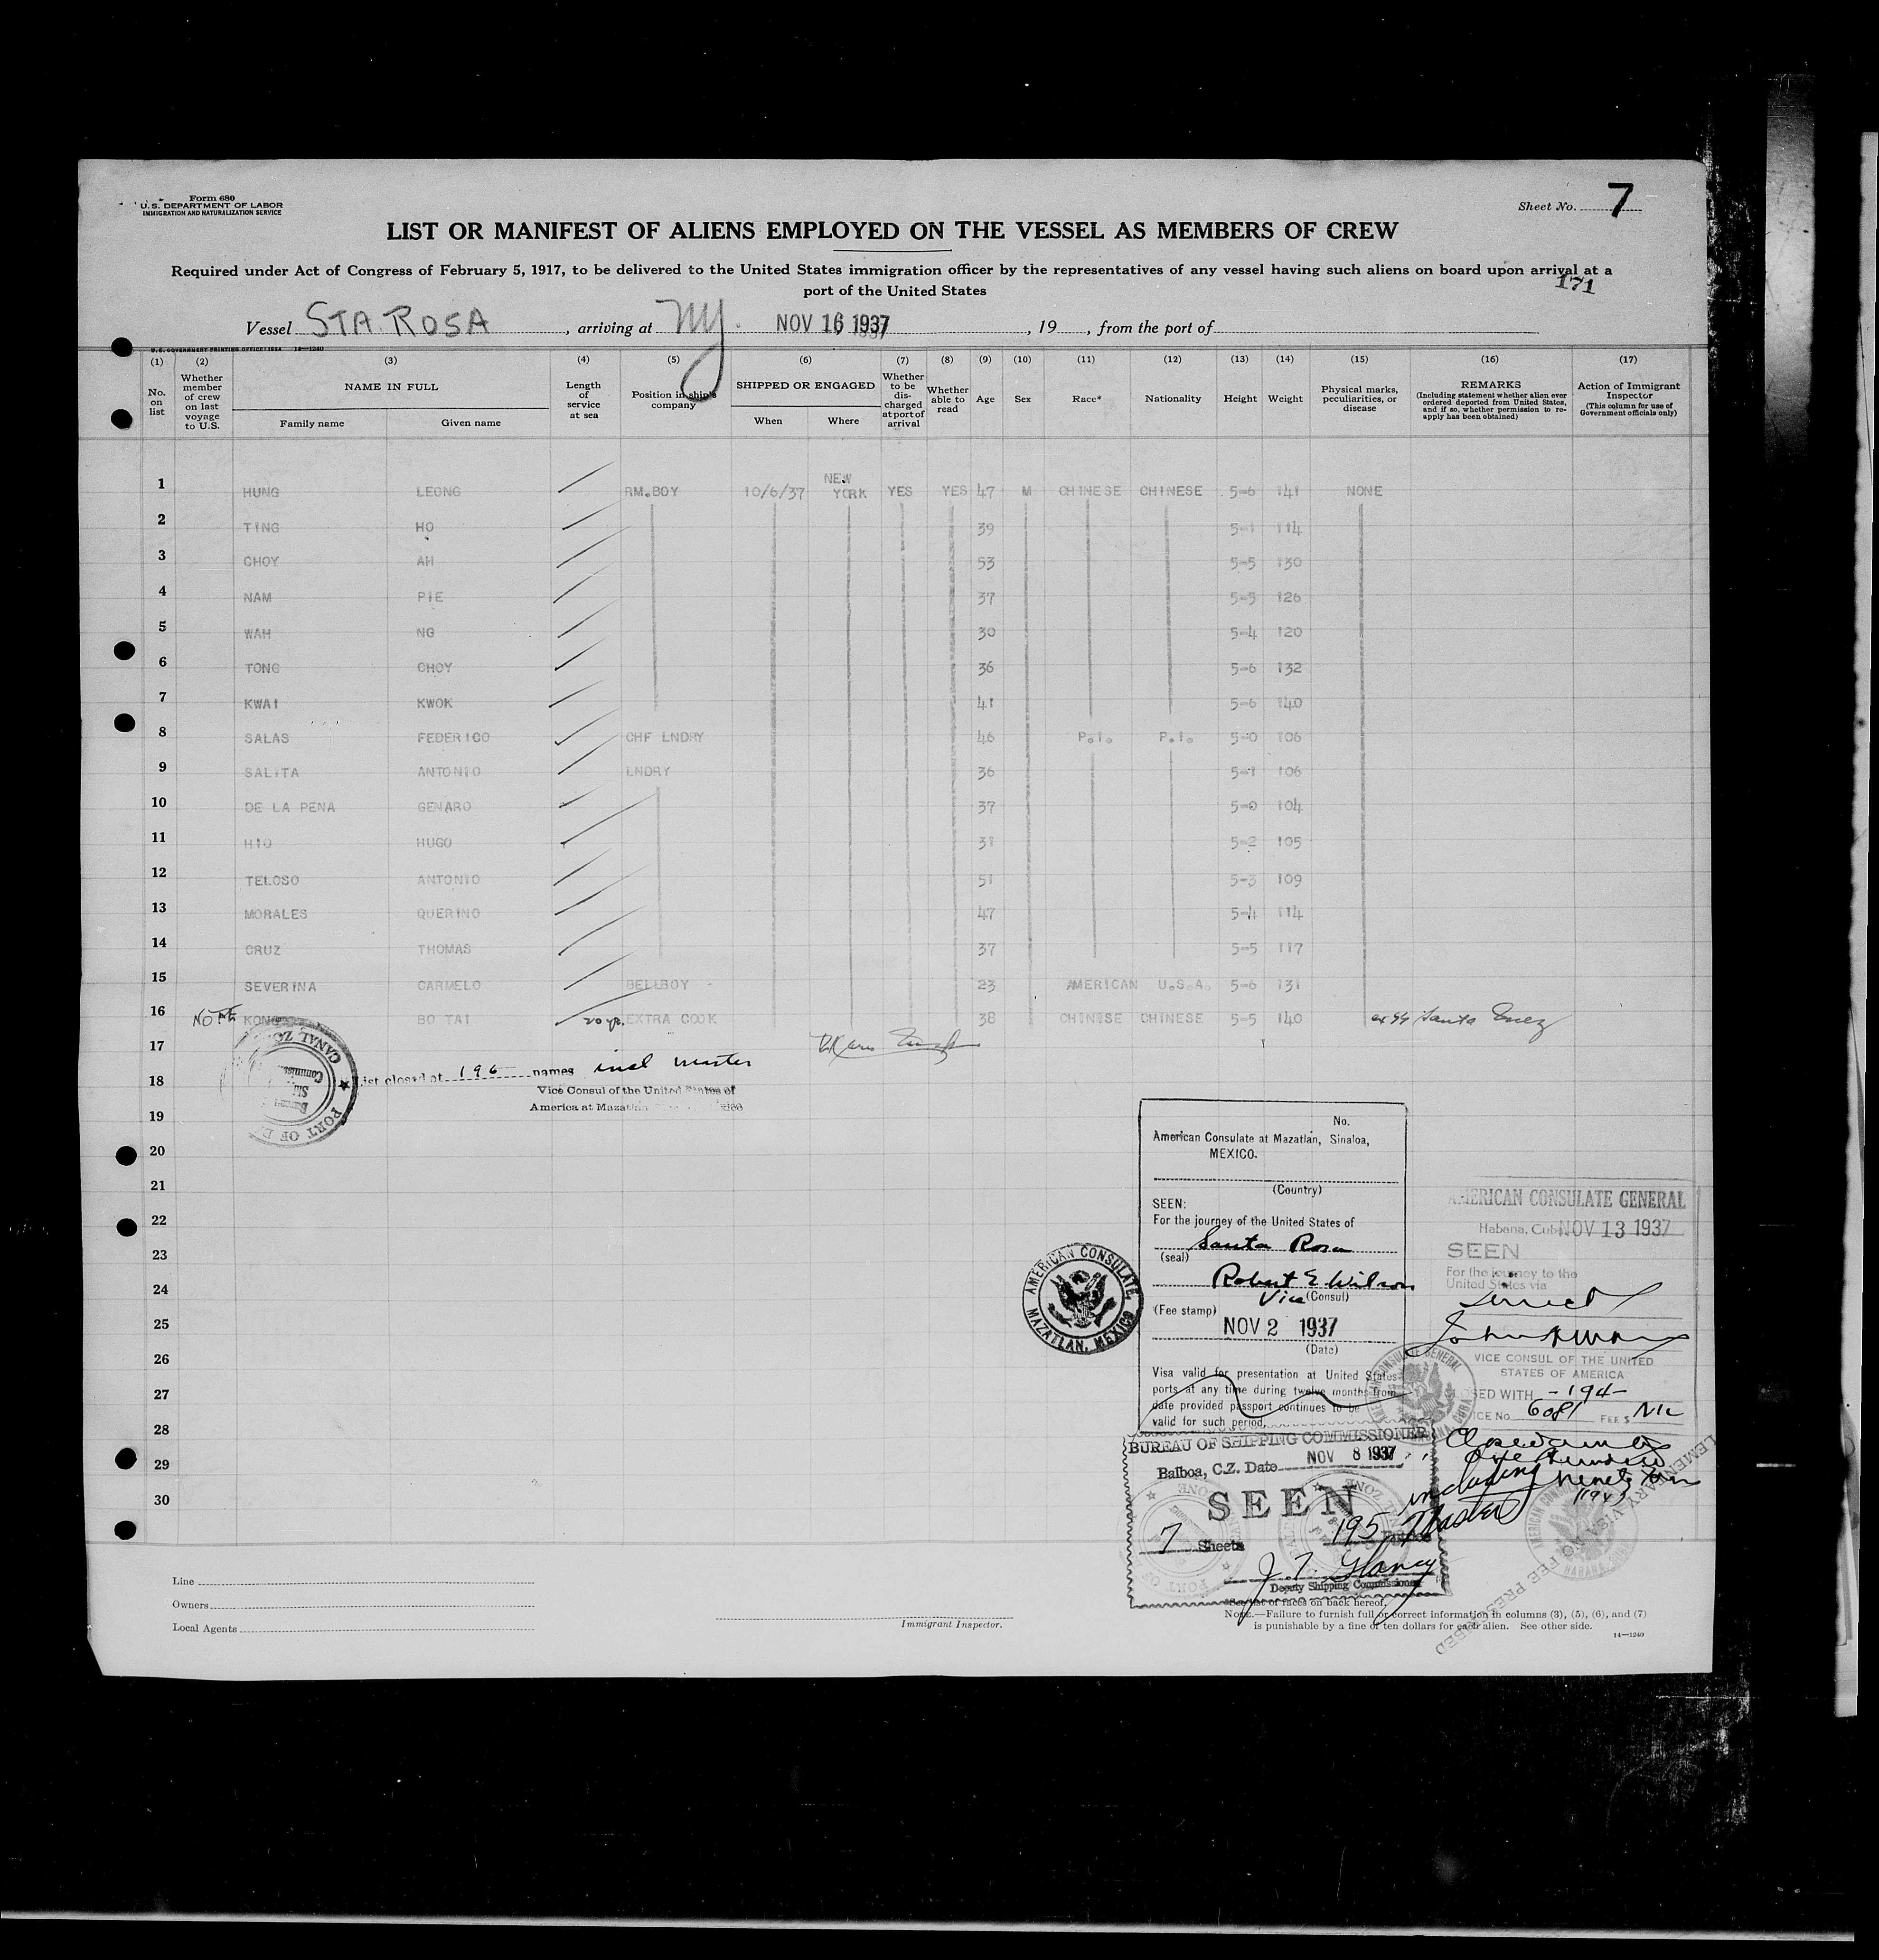 Form 680
U. S. DEPARTMENT OF LABOR
IMMIGRATION AND NATURALIZATION SERVICE
Sheet No. 7
LIST OR MANIFEST OF ALIENS EMPLOYED ON THE VESSEL AS MEMBERS OF CREW
Required under Act of Congress of February 5, 1917, to be delivered to the United States immigration officer by the representatives of any vessel having such aliens on board upon arrival at a
port of the United States
171
Vessel STA. ROSA, arriving at NY. NOV 16 1937, 19, from the port of
U. S. GOVERNMENT PRINTING OFFICE: 1934 14—1240
(1) (2) (3) (4) (5) (6) (7) (8) (9) (10) (11) (12) (13) (14) (15) (16) (17)
No. on list
Whether member of crew on last voyage to U.S.
NAME IN FULL
Family name Given name
Length of service at sea
Position in ship's company
SHIPPED OR ENGAGED
When Where
Whether to be discharged at port of arrival
Whether able to read
Age
Sex
Race*
Nationality
Height
Weight
Physical marks, peculiarities, or disease
REMARKS
(Including statement whether alien ever ordered deported from United States, and if so, whether permission to reapply has been obtained)
Action of Immigrant Inspector
(This column for use of Government officials only)
1 HUNG LEONG RM.BOY 10/6/37 NEW YORK YES YES 47 M CHINESE CHINESE 5-6 141 NONE
2 TING HO 39 5-1 114
3 CHOY AH 53 5-5 130
4 NAM PIE 37 5-5 126
5 WAH NG 30 5-4 120
6 TONG CHOY 36 5-6 132
7 KWAI KWOK 41 5-6 140
8 SALAS FEDERICO CHF LNDRY 46 P.I. P.I. 5-0 106
9 SALITA ANTONIO LNDRY 36 5-1 106
10 DE LA PENA GENARO 37 5-0 104
11 HIO HUGO 31 5-2 105
12 TELOSO ANTONIO 51 5-3 109
13 MORALES QUERINO 47 5-4 114
14 CRUZ THOMAS 37 5-5 117
15 SEVERINA CARMELO BELLBOY 23 AMERICAN U.S.A. 5-6 131
16 NOTE KONG BO TAI 20 yr. EXTRA COOK 38 CHINESE CHINESE 5-5 140 ex SS Santa Inez
17
18
19
20
21
22
23
24
25
26
27
28
29
30
List closed at 196 names incl master
Vice Consul of the United States of
America at Mazatlan
CANAL ZONE
PORT OF
No.
American Consulate at Mazatlan, Sinaloa,
MEXICO.
(Country)
SEEN:
For the journey of the United States of
Santa Rosa
(seal)
Robert E. Wilson
Vice (Consul)
(Fee stamp)
NOV 2 1937
(Date)
Visa valid for presentation at United States
ports at any time during twelve months from
date provided passport continues to be
valid for such period.
AMERICAN CONSULATE,
MAZATLAN, MEXICO
AMERICAN CONSULATE GENERAL
Habana, Cuba NOV 13 1937
SEEN
For the journey to the
United States via
direct
VICE CONSUL OF THE UNITED
STATES OF AMERICA
CLOSED WITH -194-
SERVICE No. 6081 FEE $ Nil
including
ninety
(194)
Master
BUREAU OF SHIPPING COMMISSIONER
Balboa, C.Z. Date NOV 8 1937
SEEN
7 Sheets 195
J. T. Glancy
Deputy Shipping Commissioner
Line
Owners
Local Agents
Immigrant Inspector.
*See list of races on back hereof.
NOTE.—Failure to furnish full or correct information in columns (3), (5), (6), and (7)
is punishable by a fine of ten dollars for each alien. See other side.
14—1240